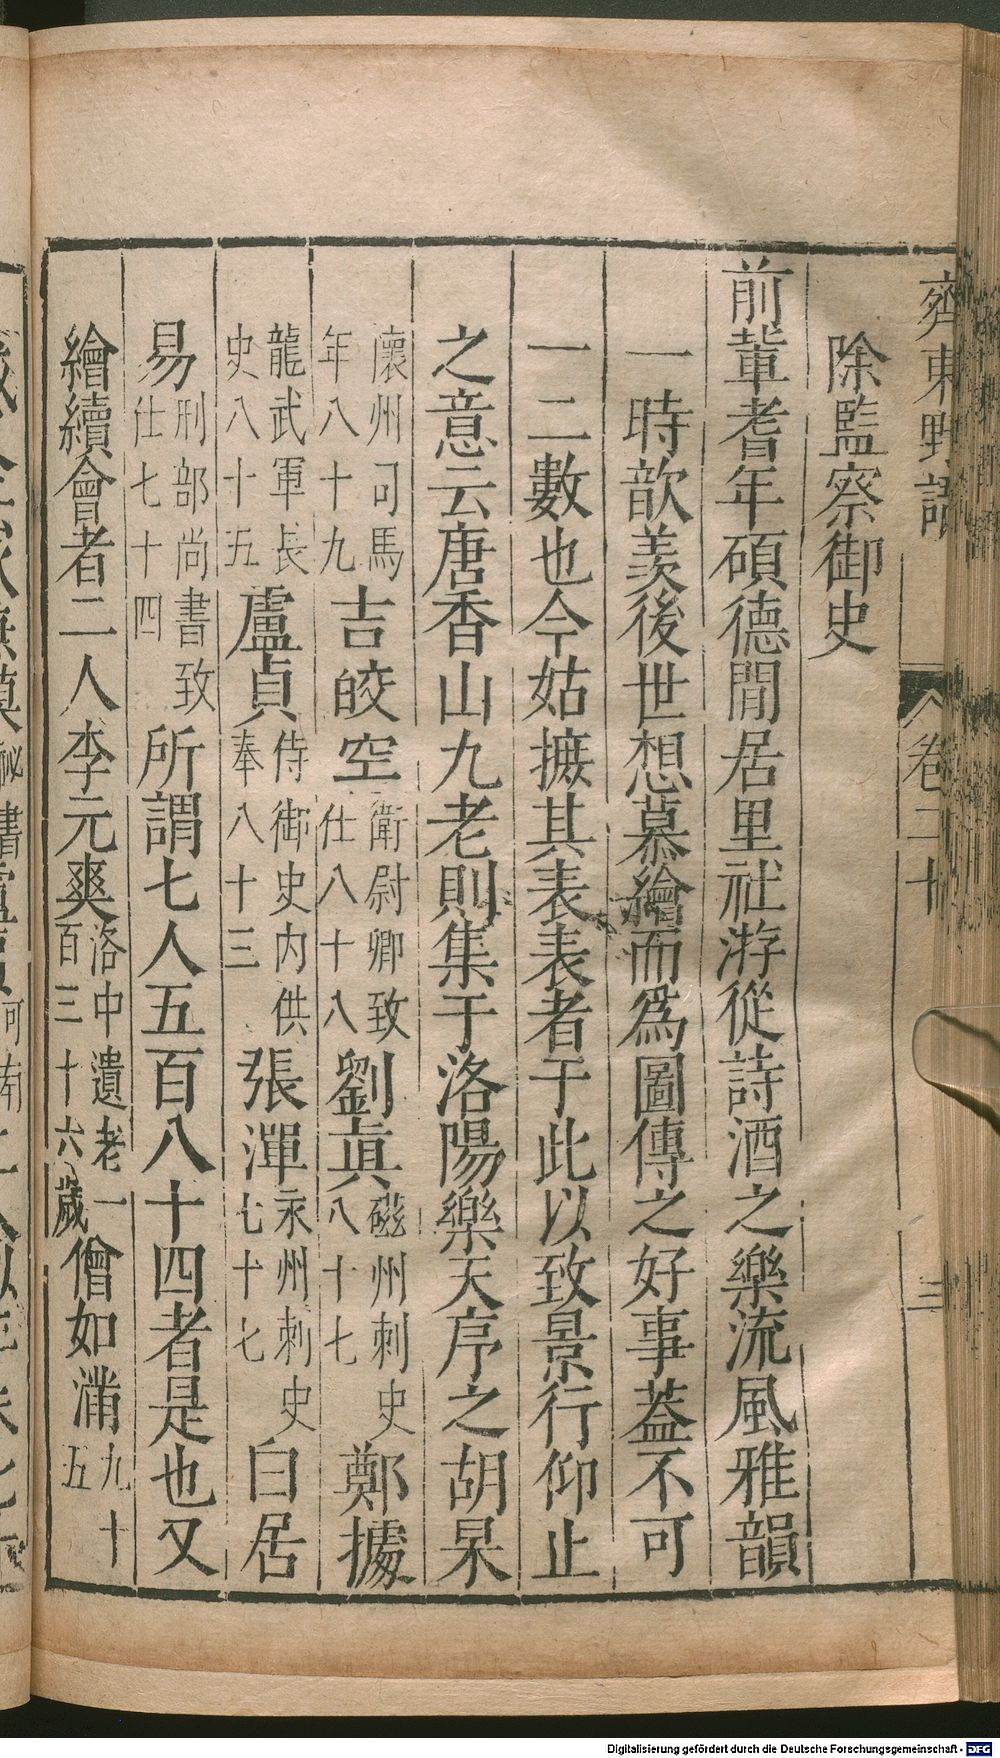 齊東野語 卷二十 三
除監察御史
前輩耆年碩德閒居里社游從詩酒之樂流風雅韻
一時歆羨後世想慕繪而為圖傳之好事蓋不可
一二數也今姑摭其表表者于此以致景行仰止
之意云唐香山九老則集于洛陽樂天序之胡杲
懷州司馬年八十九吉皎空衛尉卿致仕八十八劉真磁州刺史八十七鄭據
龍武軍長史八十五盧貞侍御史内供奉八十三張渾永州刺史七十七白居
易刑部尚書致仕七十四所謂七人五百八十四者是也又
繪續會者二人李元爽洛中遺老百三十六歲一僧如滿九十五
Digitalisierung gefördert durch die Deutsche Forschungsgemeinschaft - DFG